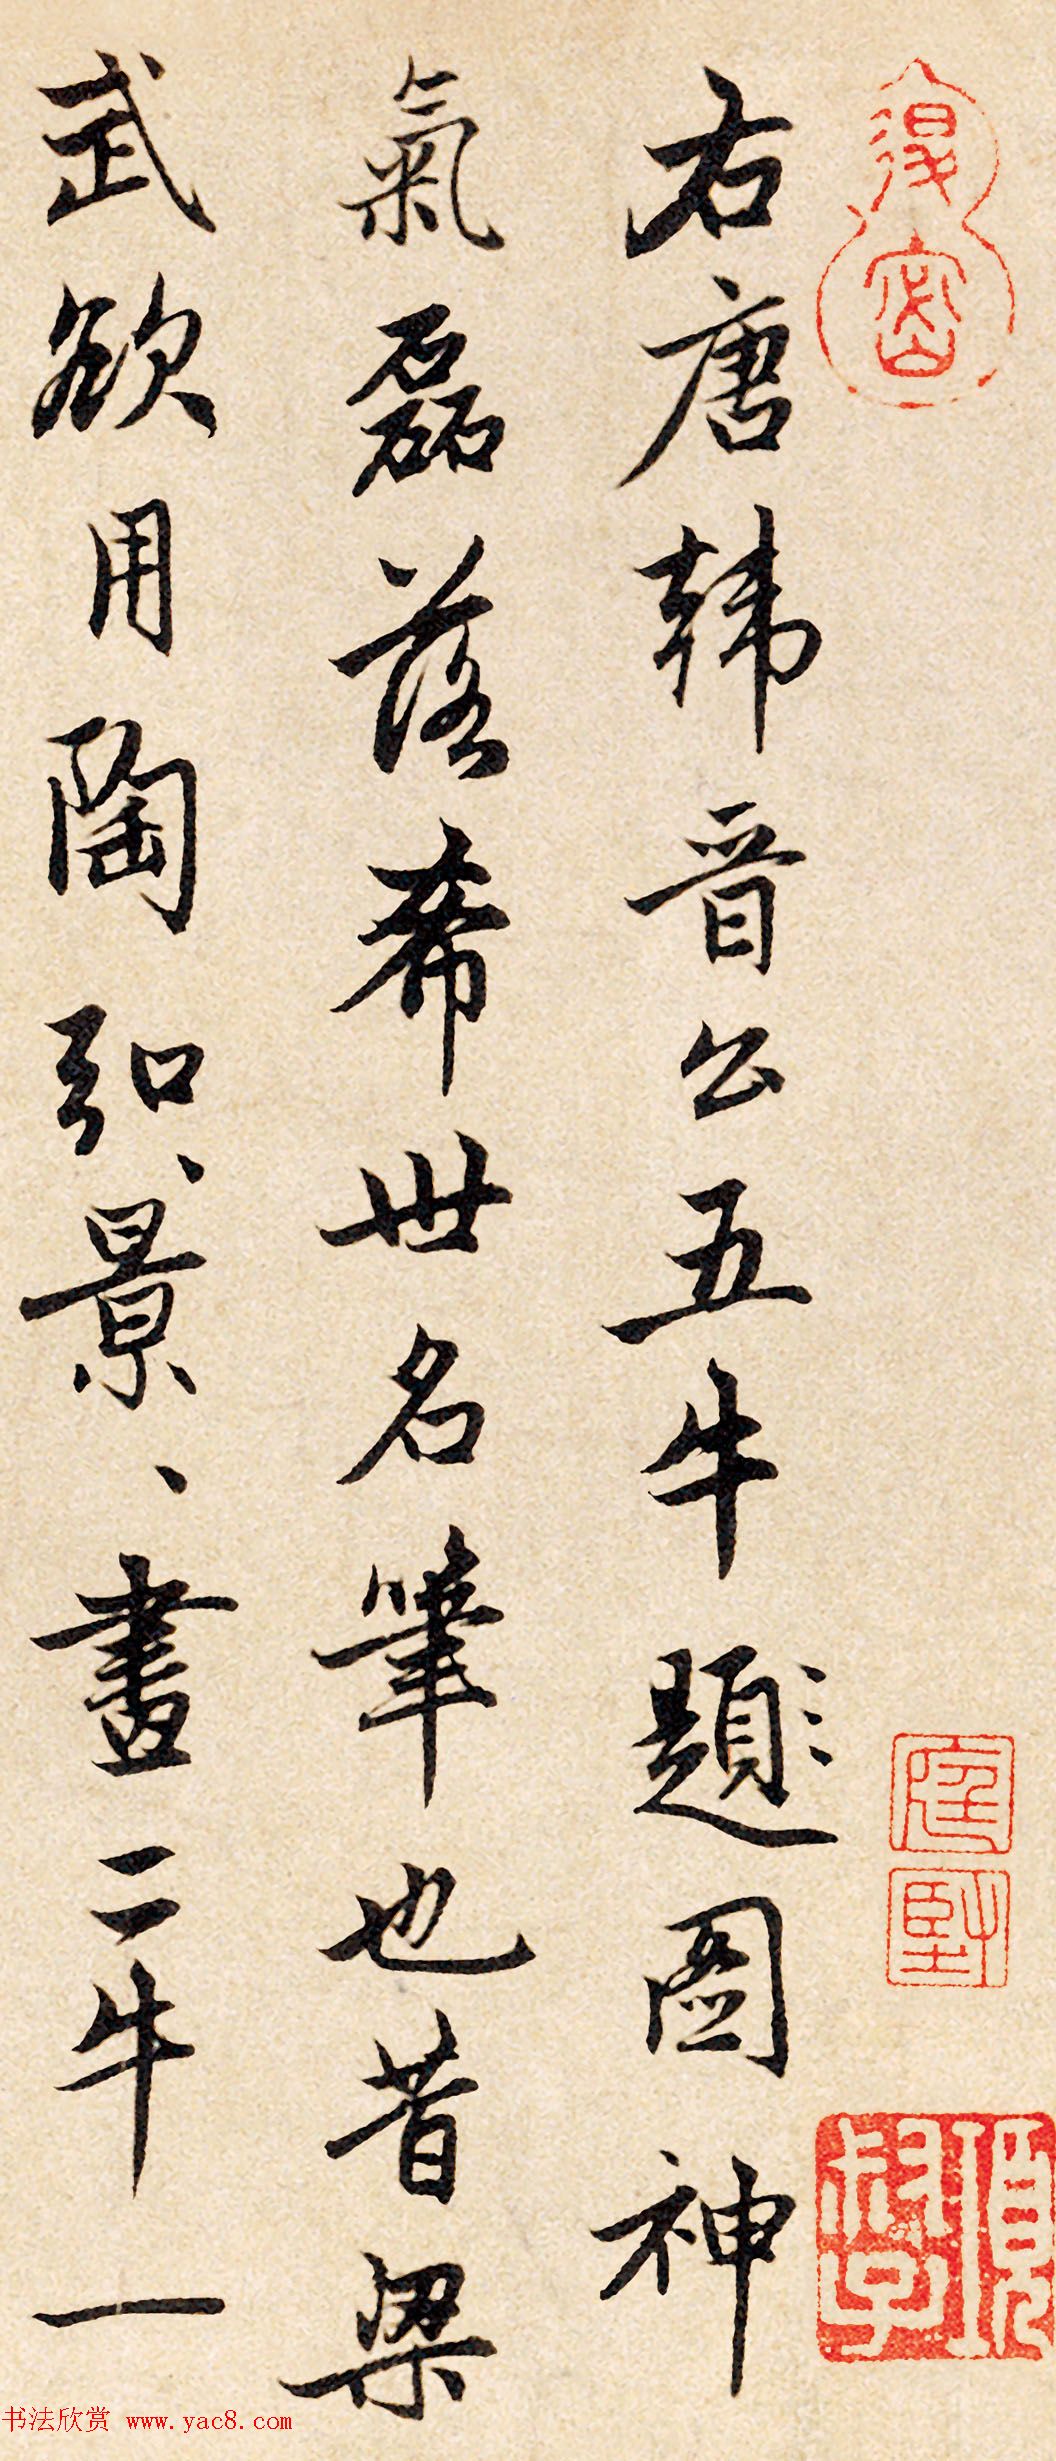 右唐韩晋公五牛题图神
氣磊落希世名筆也昔梁
武欲用陶弘景、、畫二牛一
書法欣赏 www.yac8.com